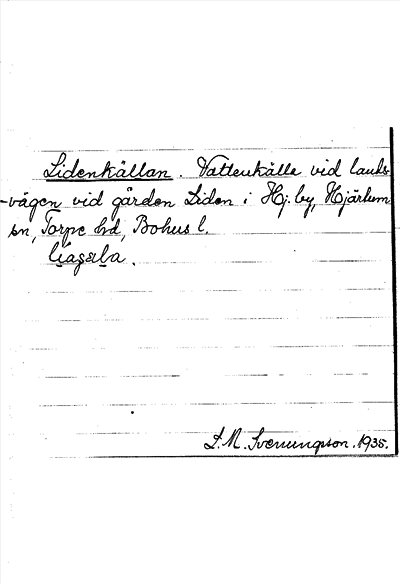 Lidenkällan. Vattenkälla vid lands-
-vägen vid gården Liden i Hj. by, Hjärtum
sn, Torpe hd, Bohus l.
S. M. Svenungsson. 1935.